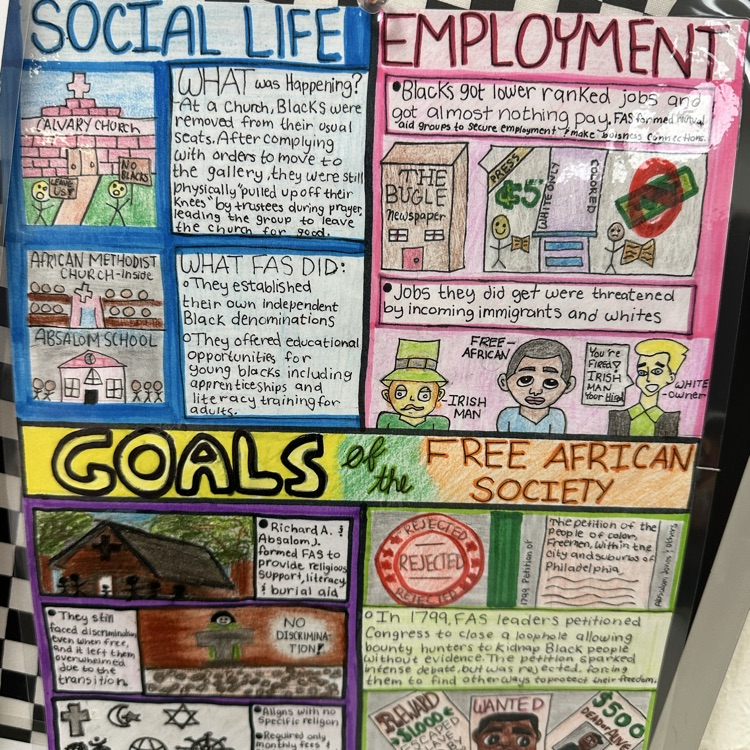 SOCIAL LIFE
CALVARY CHURCH
LEAVE
US!
NO
BLACKS
WHAT was Happening?
-At a church, Blacks were
removed from their usual
seats. After complying
with orders to move to
the gallery, they were still
physically "pulled up off their
knees" by trustees during prayer,
leading the group to leave
the church for good.
AFRICAN METHODIST
CHURCH-Inside
ABSALOM SCHOOL
WHAT FAS DID:
They established
their own independent
Black denominations
They offered educational
opportunities for
young blacks including
apprenticeships and
literacy training for
adults.
EMPLOYMENT
Blacks got lower ranked jobs and
got almost nothing pay. FAS formed mutual
aid groups to secure employment & make buisness connections.
THE
BUGLE
Newspaper
PRESS
$5
WHITE ONLY
COLORED
Jobs they did get were threatened
by incoming immigrants and whites
IRISH
MAN
FREE-
AFRICAN
You're
FIRED!
IRISH
MAN
Your Hired
WHITE
-owner
GOALS of the FREE AFRICAN
SOCIETY
Richard A. &
Absalom J.
formed FAS to
provide religious
support, literacy
& burial aid
They still
faced discrimination
even when free,
and it left them
overwhelmed
due to the
transition.
NO
DISCRIMINA-
TION!
Aligns with no
Specific religon
Required only
monthly fees
REJECTED
REJECTED
REJECTED
1799 Petition of
The petition of the
People of color,
Freemen, within the
city and suburbs of
Philadelphia
In 1799, FAS leaders petitioned
Congress to close a loophole allowing
bounty hunters to kidnap Black people
without evidence. The petition sparked
intense debate, but was rejected, forcing
them to find other ways to protect their freedom.
REWARD
$1000
ESCAPED
WANTED
$500
DEAD